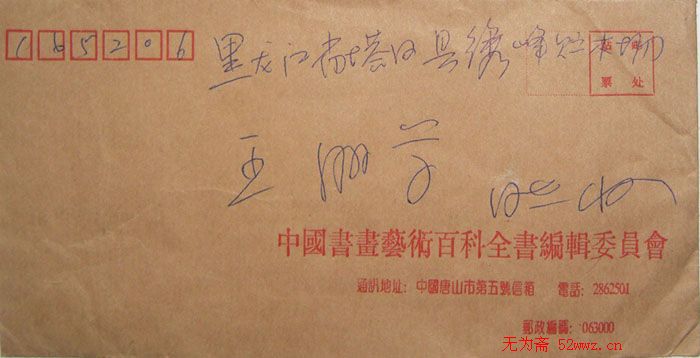 165206
黑龙江省塔河县绣峰贮木场
票处
王
收
中國書畫藝術百科全書編輯委員會
通訊地址：中國唐山市第五號信箱 電話：2862501
郵政編碼：063000
无为斋 52wwz.cn